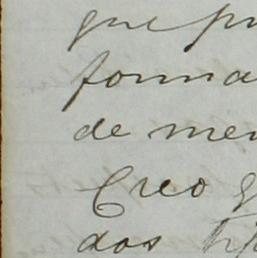 que pu
forma
de men
Creo q
dos tip